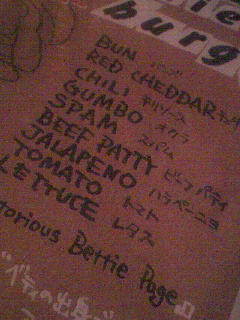 ie
burg
BUN バンズ
RED CHEDDAR チェダー
CHILI チリソース
GUMBO オクラ
SPAM スパム
BEEF PATTY ビーフパティ
JALAPENO ハラペーニョ
TOMATO トマト
LETTUCE レタス
torious Bettie Page
"ベティの出